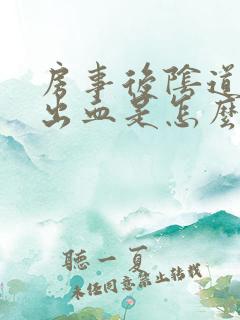 房事後陰道
出血是怎麼
聽一夏
未經同意禁止轉載